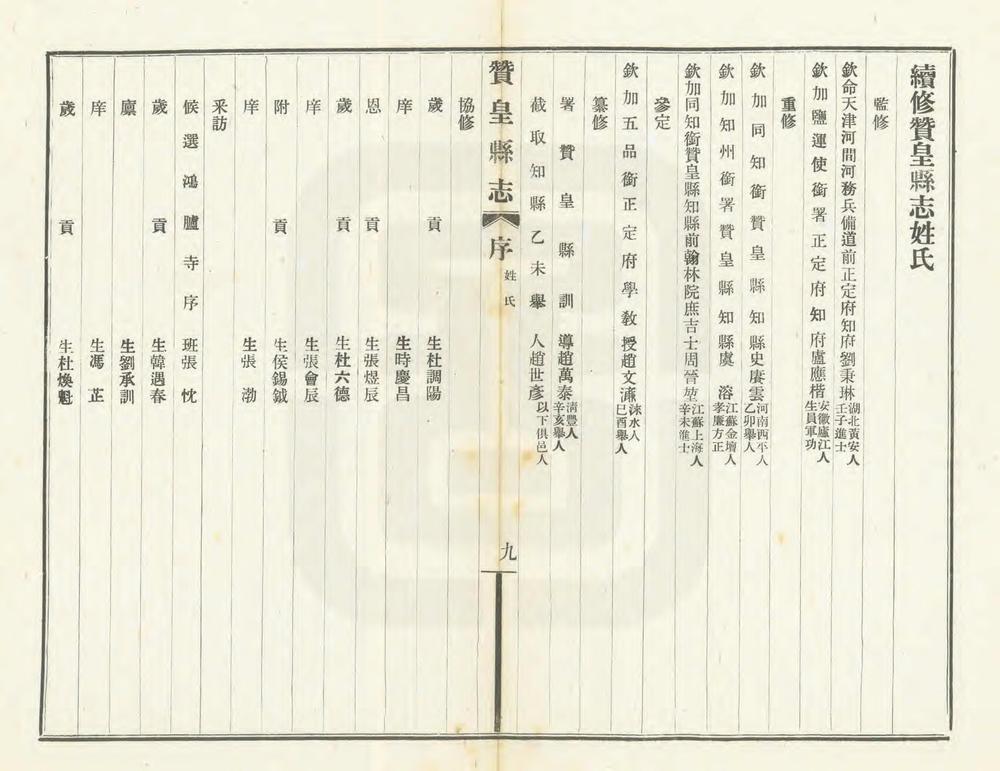 續修贊皇縣志姓氏
監修
欽命天津河間河務兵備道前正定府知府劉秉琳湖北黃安人壬子進士
欽加鹽運使銜署正定府知府盧應楷安徽廬江人生員軍功
重修
欽加同知銜贊皇縣知縣史賡雲河南西平人乙卯舉人
欽加知州銜署贊皇縣知縣虞溶江蘇金壇人孝廉方正
欽加同知銜贊皇縣知縣前翰林院庶吉士周晉堃江蘇上海人辛未進士
參定
欽加五品銜正定府學教授趙文濂淶水人己酉舉人
纂修
署贊皇縣訓導趙萬泰清豐人辛亥舉人
截取知縣乙未舉人趙世彥以下俱邑人
贊皇縣志 序 姓氏 九
協修
歲貢生杜調陽
庠生時慶昌
恩貢生張煜辰
歲貢生杜六德
庠生張會辰
附貢生侯錫鉞
庠生張渤
采訪
候選鴻臚寺序班張忱
歲貢生韓遇春
廩生劉承訓
庠生馮芷
歲貢生杜煥魁